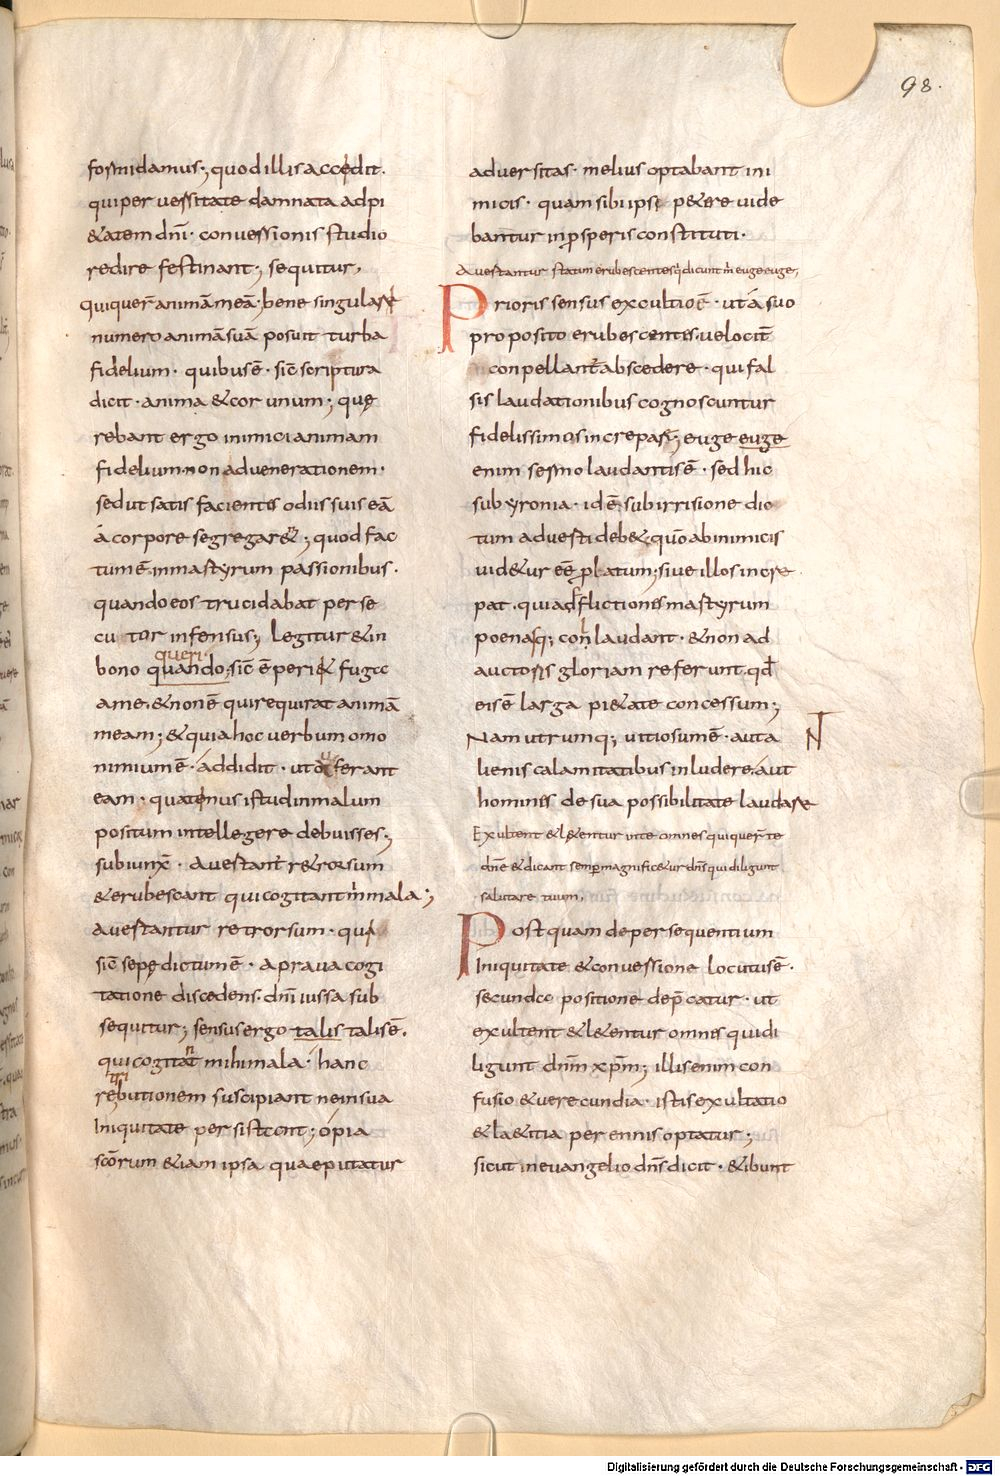 98.
formidamus; quod illis accedit.
qui per uersitate damnata ad pi
&atem dn̄i· conuersionis studio
redire festinant; sequitur,
qui quer̄ animā meā; bene singulare
numero animā suā posuit turba
fidelium· quibus ē· sic̄ scriptura
dicit· anima & cor unum; quę
rebant ergo inimici animam
fidelium· non ad uenerationem·
sed ut satis facientes odiis suis eā
á corpore segregar&; quod fac
tum ē in martyrum passionibus·
quando eos trucidabat perse
cutor infensus; legitur & in
queri
bono quando; sic̄ ē peri& fuga
a me· & non ē qui requirat animā
meam; & quia hoc uerbum omo
nimium ē· áddidit· ut auferant
eam· quatenus istud in malum
positum intellegere debuisses;
subiunx̄· Auertant̄ r&rorsum
& erubescant qui cogitant m̄ mala;
auertantur retrorsum· qua
sic̄ sepę dictum ē· a praua cogi
tatione discedens· dn̄i iussa sub
sequitur; sensus ergo talis talis ē.
qui cogitat mihi mala· hanc
tri
rebutionem suscipiant ne in sua
iniquitate persistant; ópia
sc̄orum & iam ipsa quae putatur
aduersitas· melius optabant ini
micis· quam sibi ipsi p&ere uide
bantur in ꝓsperis constituti·
Auertantur statim erubescentes q̇ dicunt m̄ euge euge;
Prioris sensus ex cultio ē· ut á suo
proposito erubescentes· uelocit̄
conpellant̄ abscedere· qui fal
sis laudationibus cognoscuntur
fidelissimos increpasse; euge euge
enim sermo laudantis ē· sed hic
sub yronia· id ē sub irrisione dic
tum aduerti deb&, quō ab inimicis
uid&ur eē̄ platum; siue illos incre
pat· quia d flictiones martyrum
poenasq; con laudant· & non ad
auctoris gloriam referunt· qd̄
eis ē larga pi&ate concessum;
Nam utrumq; uitiosum ē· aut a
N
lienis calamitatibus inludere· áut
hominis de sua possibilitate laudare
Exultent & l&entur in te omnes qui quer̄ te
dn̄e & dicant semp magnific&ur dn̄s qui diligunt
salutare tuum;
Postquam de persequentium
iniquitate & conuersione locutus ē·
secundo positione dep̄catur· ut
exultent & l&entur omnes qui di
ligunt dn̄m xp̄m; illis enim con
fusio & uerecundia· istis exultatio
& la&itia perennis optatur;
sicut in euangelio dn̄s dicit· & ibunt
Digitalisierung gefördert durch die Deutsche Forschungsgemeinschaft - DFG